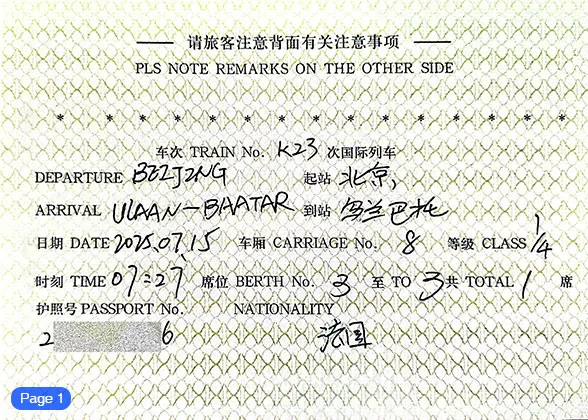 请旅客注意背面有关注意事项
PLS NOTE REMARKS ON THE OTHER SIDE
* * * * * * * * * * * * * * * * *
车次 TRAIN No. K23 次国际列车
DEPARTURE BEIJING 起站 北京
ARRIVAL ULAAN-BAATAR 到站 乌兰巴托
日期 DATE 2025.07.15 车厢 CARRIAGE No. 8 等级 CLASS 1/4
时刻 TIME 07:27 席位 BERTH No. 3 至 TO 3 共 TOTAL 1 席
护照号 PASSPORT No. NATIONALITY
2 6 法国
Page 1